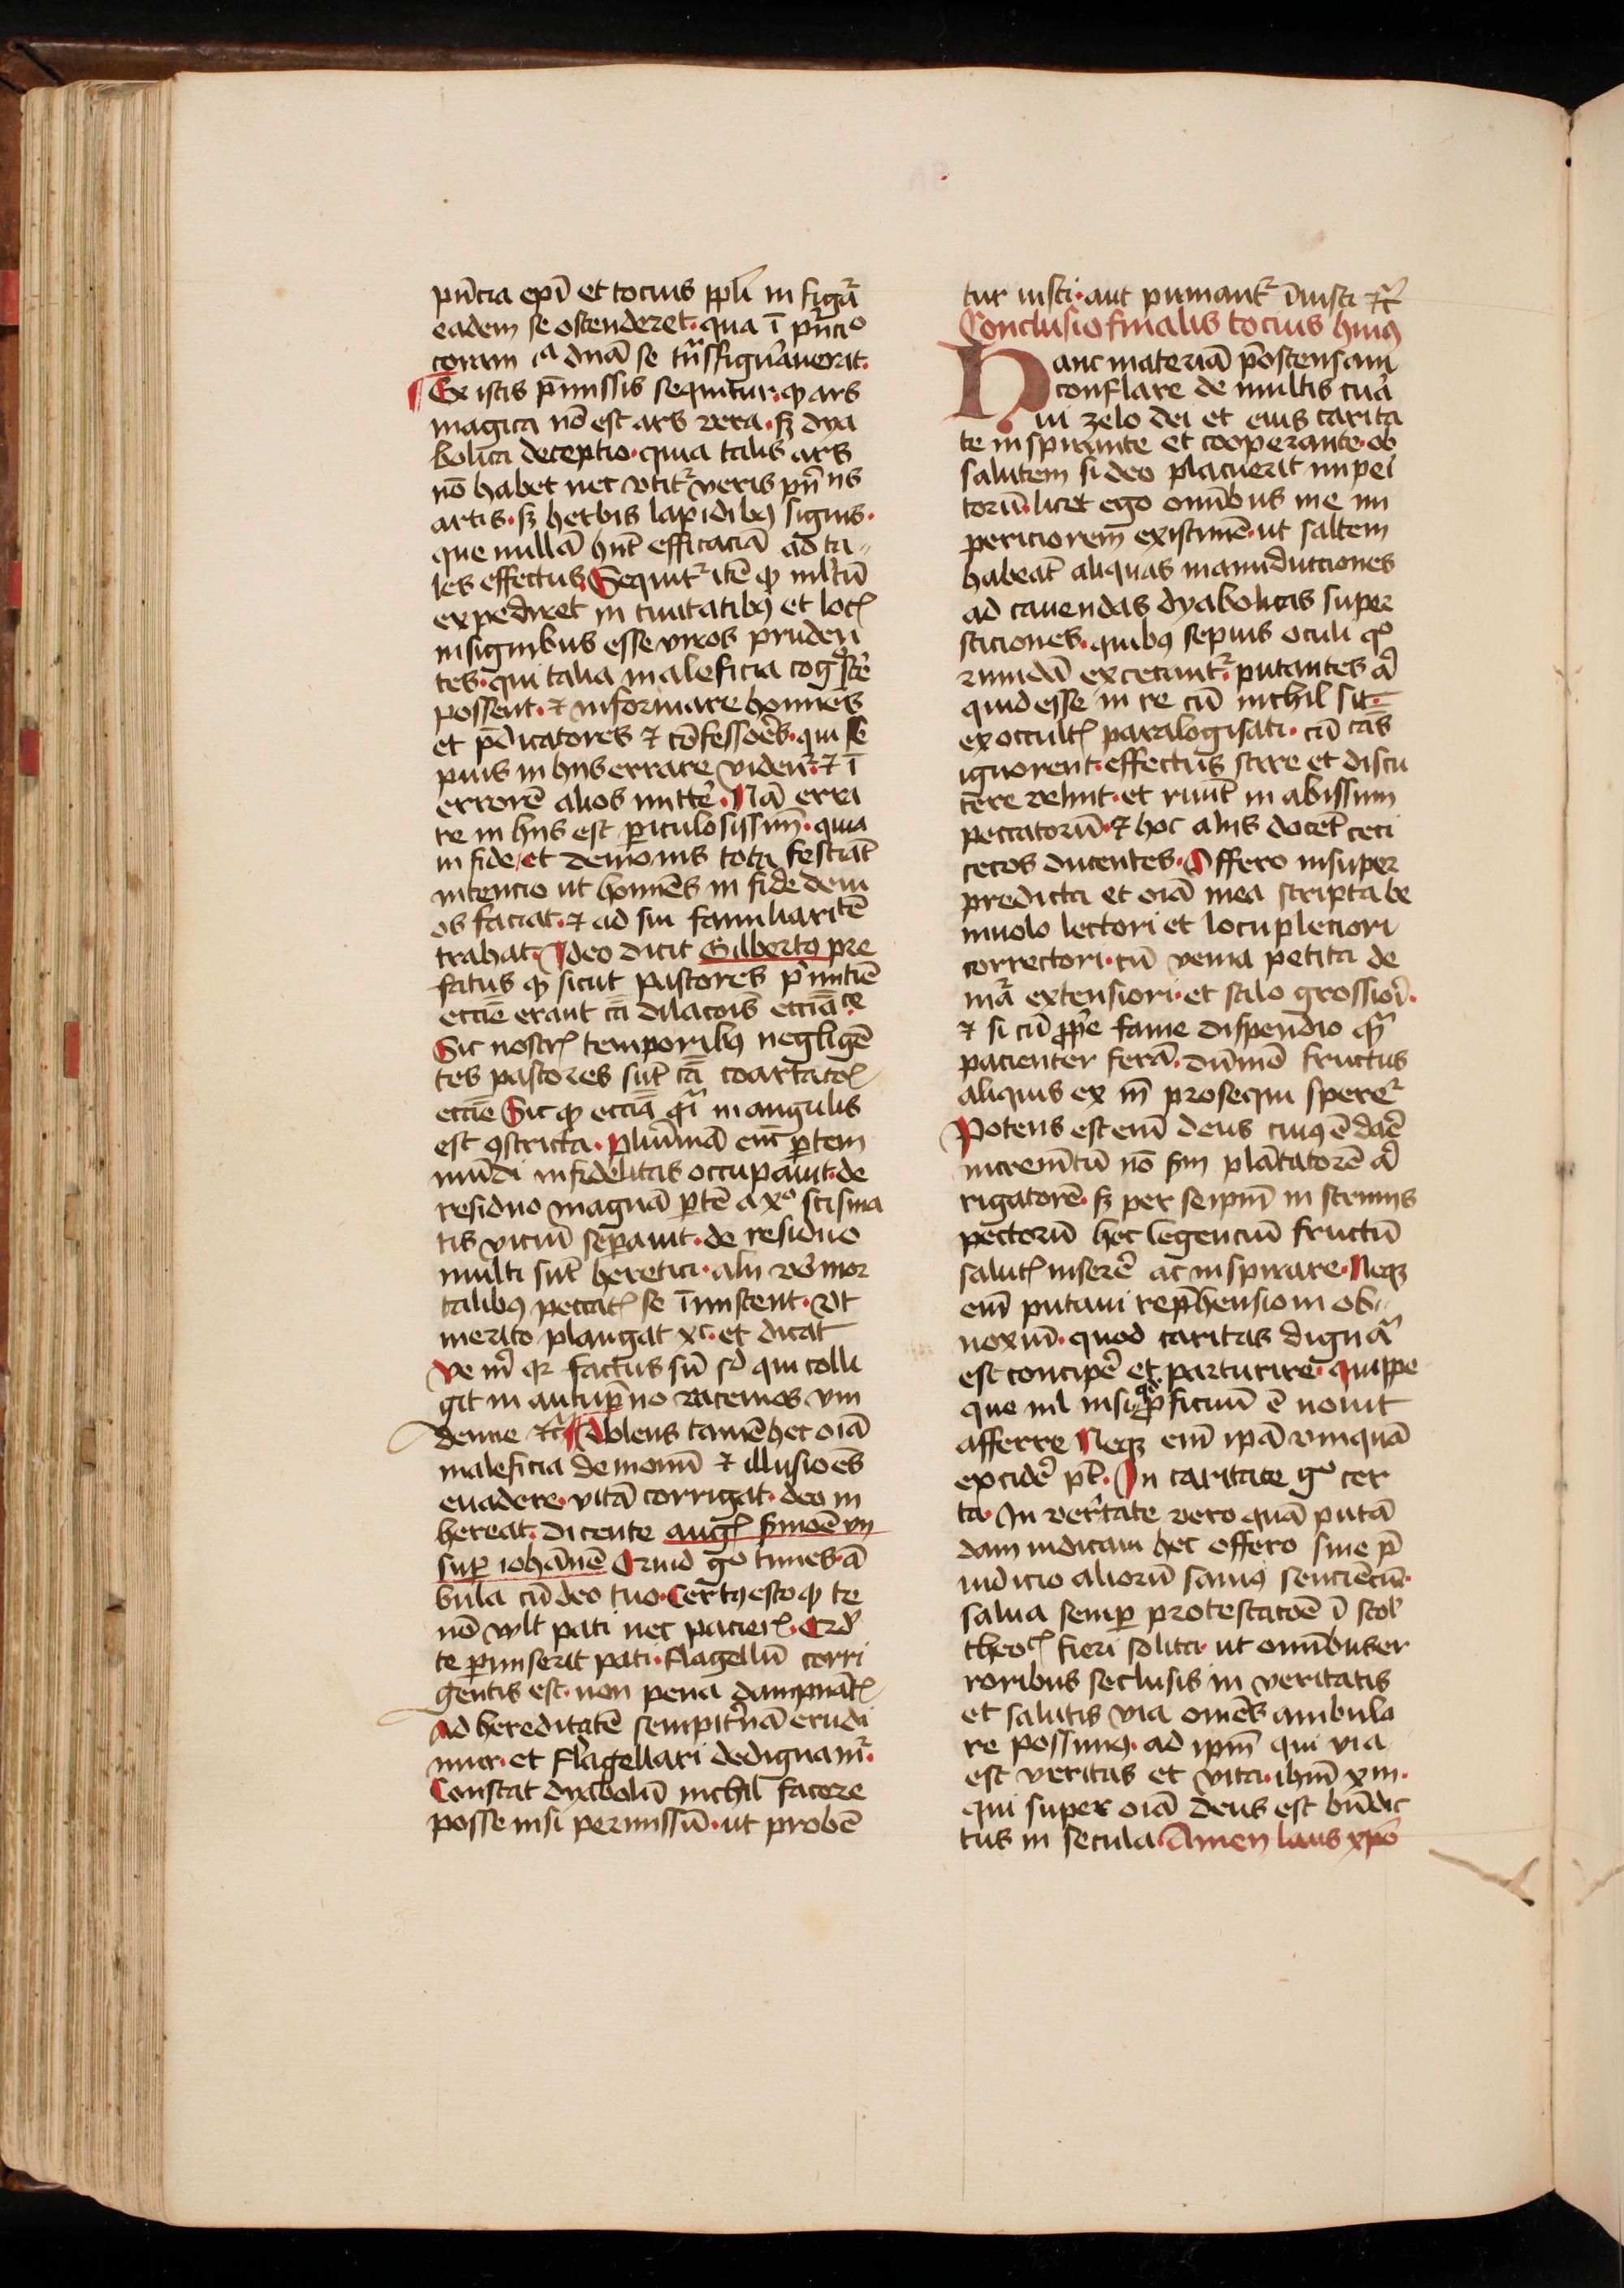 pn̄cia epī et tocius ppl̄i in figᷓa
eadem se ostenderet · qua ī pn̄cio
coram ia dnā se tn̄sfiguraverat ·
Ex istis p̄missis sequitur · ꝙ ars
magica nō est ars vera · sꝫ dya
bolica deceptio · quia talis ars
nō habet nec vtit᷑ veris pn̄ns
artis · sꝫ herbis lapidibꝰ signis ·
que nullā hn̄t efficaciā ad ta〃
les effectus Sequit᷑ itē ꝙ ml̄tū
expediret in ciuitatibꝰ et locꝭ
insignibus esse viros pruden
tes · qui talia maleficia cog͛sc̄e
possent · ⁊ informare homīes
et p̄dicatores ⁊ cōfessoēs · qui se
pius in hijs errare viden᷑t · ⁊ ī
errorē alios mitte᷑ · Nā erra
re in hijs est ꝑiculosissim̄ · quia
in fide / et demonis tota festiat᷑
intencio ut homīes in fide devi
os faciat · ⁊ ad sui familiaritē
trahat · Ideo dicit Gilberto pre
fatus ꝙ sicut pastores p̄mitiē
ecc̄ie erant cā dilacōis ecc̄iāce
Sic nostrꝭ temporibꝰ negligē
tes pastores sūt cā coartacōꝭ
ecc̄ie Sic ꝙ ecc̄ia qͣi in angulis
est ꝯstricta · plurimā enī ꝑtem
mūdi infidelitas occupauit · de
residuo magnā ꝑtē a xo scisma
tis viciū seꝑauit · de residuo
multi sūt heretici · alij vo mor
talibꝰ peccatꝭ se īmiscent · Vt
merito plangat xc · et dicat
Ve m͛ qr factus sū sd qui colli
git in autūpno racemos vin
demie ⁊c̄ Volens tamē hec oīa
maleficia demonū ⁊ illusioēs
euadere · vitā corrigat · deo in
hereat · dicente augꝭ s̄moē vij
suꝑ iohānē Quid go times · ā
bula cū deo tuo · Certꝰ esto ꝙ te
nō vult pati nec pacierꝭ · Qd
te ꝑmiserit pati · flagellū corri
gentis est · non pena dampnātꝭ
Ad hereditatē sempit̄nā erudi
mur · et flagellari dedignam᷑ ·
Constat dyabolū nichil facere
posse nisi permissū · ut probē
tur iusti · aut puniant᷑ iniusti ⁊c̄
Conclusio finalis tocius huiꝰ
Hanc materiā p̄ostensam
conflare de multis cura
ui zelo dei et eius carita
te inspirante et cooperante · ob
salutem si deo placuerit impei
torū · licet ego omībus me im
periciorem existimē · ut saltem
habeat᷑ aliquas manuducciones
ad cauendas dyabolicas super
sticiones · quibꝰ sepius oculi qͦ
rundā excecant᷑ · putantes a͛
quid esse in re cū nichil sit ·
ex occultꝭ paralogisati · cū cās
ignorent · effectus scire et discu
tere velint · et ruūt in abissum
peccatorū · ⁊ hoc alijs docet᷑ ceci
cecos ducentes · Offero insuper
predicta et oīa mea scripta be
niuolo lectori et locupleciori
correctori · cū venia petita de
mā extensiori · et stilo grossiori ·
⁊ si cū ꝓprie fame dispendio qͣ
pacienter ferā · dūmō fructus
aliquis ex m̄ prosequi spere᷑
Potens est enī deus cuiꝰ ē dare
incremētū nō sm plantatorē a͛
rigatorē · sꝫ per seipm̄ in scrinijs
pectorū hec legenciū fructū
salutꝭ inserē ac inspirare · Neqꝫ
enī putaui rep̄hensioni ob〃
noxiū · quod caritas dignāt᷑
est concipē et parturire · quippe
que nil nisi qd ꝓficuū ē nouit
afferre Neqꝫ enī ipā vmquā
excidē pt · In caritate go cer
ta · In veritate vero quā putā
dam iudicaui hec offero sine p̄
iudicio aliorū saniꝰ senciēciū ·
salua semꝑ protestacōe ī scol͛
theocꝭ fieri solita · ut omībus er
roribus seclusis in veritatis
et salutis via omēs ambula
re possimꝰ · ad ipm̄ qui via
est veritas et vita · ihm̄ xm ·
qui super oīa deus est bn̄dic
tus in secula · Amen laus xpō